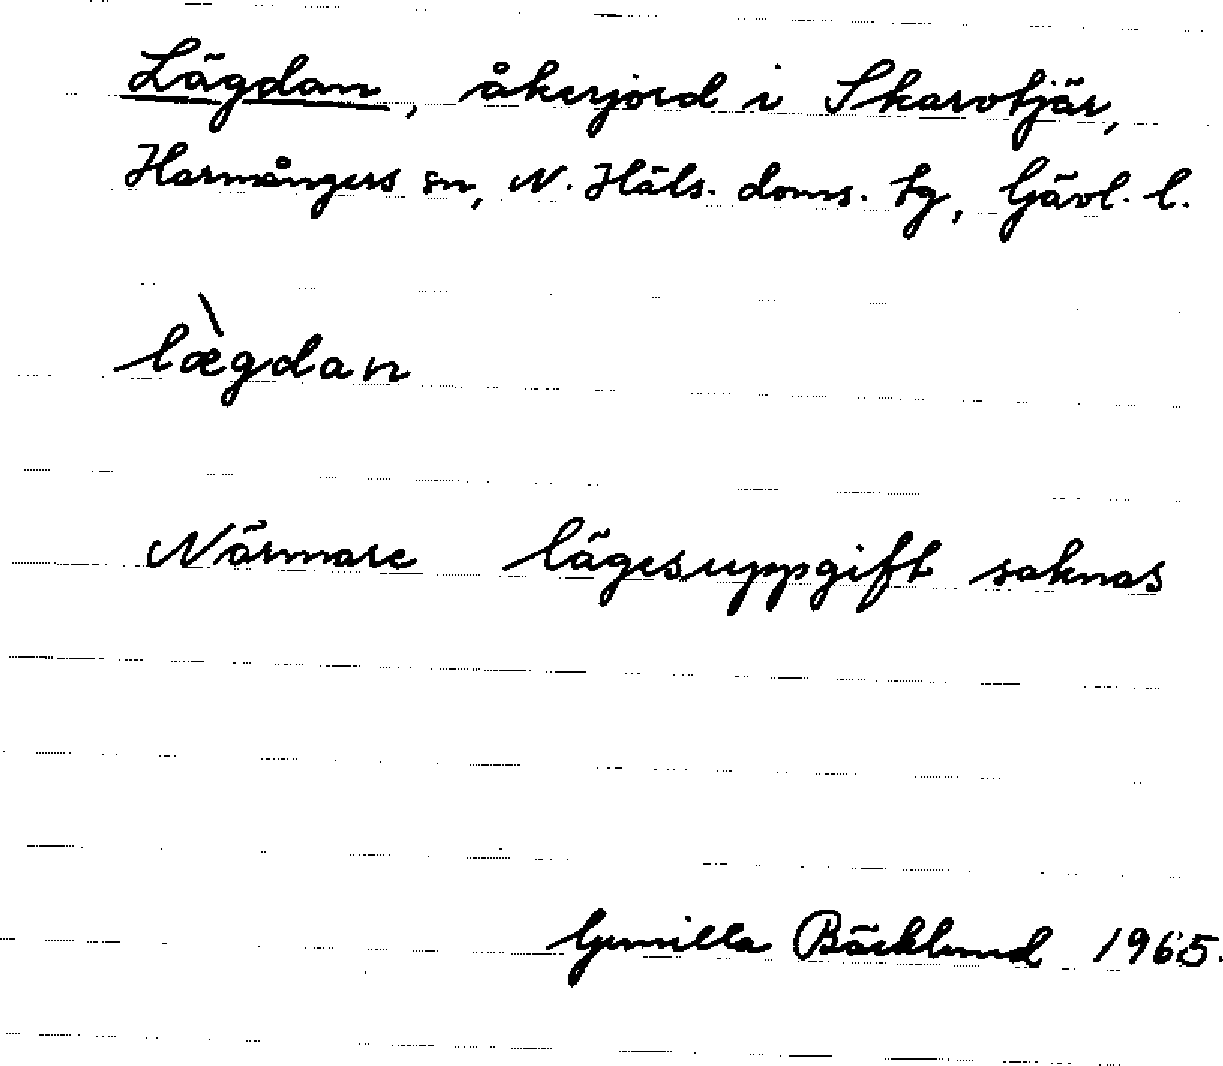 Lägdan, åkerjord i Skarvtjär,
Harmångers sn, N. Häls. doms. tg, Gävl. l.
lægdan
Närmare lägesuppgift saknas
Gunilla Bäcklund 1965.